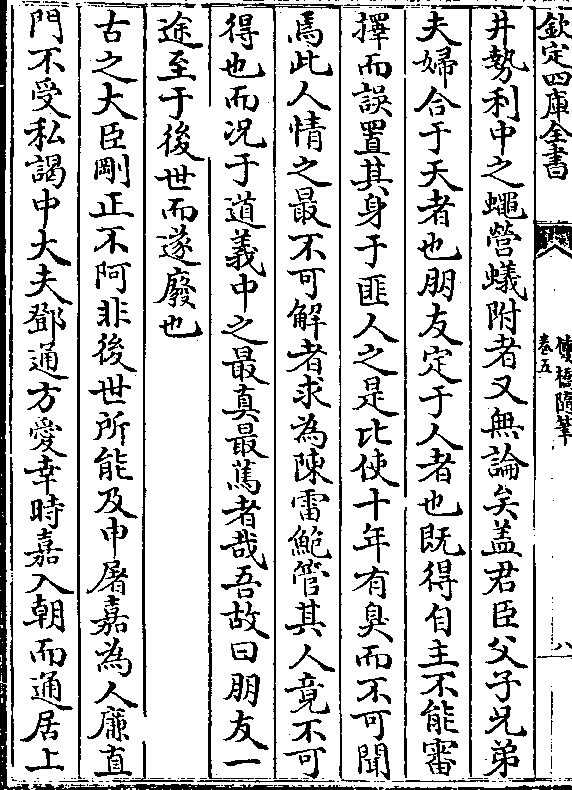 欽定四庫全書
懷橋隨筆
卷五
八
井勢利中之蠅營蟻附者又無論矣盖君臣父子兄弟
夫婦合于天者也朋友定于人者也既得自主不能審
擇而誤置其身于匪人之是比使十年有臭而不可聞
焉此人情之最不可解者求為陳雷鮑管其人竟不可
得也而况于道義中之最真最篤者哉吾故曰朋友一
途至于後世而遂廢也
古之大臣剛正不阿非後世所能及申屠嘉為人廉直
門不受私謁中大夫鄧通方愛幸時嘉入朝而通居上